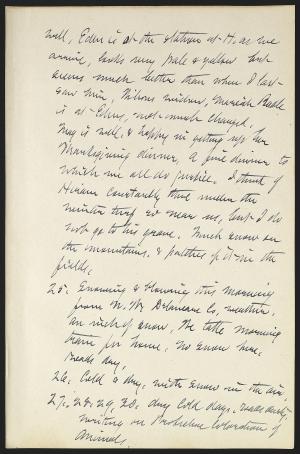 well, Eden is at the station at H. as we
arrive, looks very pale & yellow but
seems much better than when I last
saw him, Wilsons widow, Mariah
is at Edens, not much changed.
Mag is well, & happy in getting up her
Thanksgiving dinner, A fine dinner to
which we all do justice. I think of
Hiram constantly those
so near us, but I do
not go to his grave. Much snow on
the mountains, & patches of it in the
fields.
25. Snowing & blowing this morning
from N. W. Delaware Co. weather.
an inch of snow, We take morning
train for home. No snow here.
day,
26. Cold & dry, with snow in the air.
27, 28, 29, 30. dry cold days.
writing on Protective Coloration of
Animals.